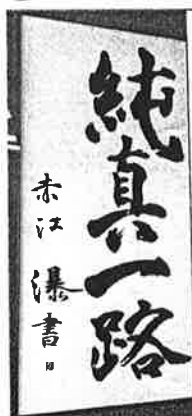 純真一路
赤江瀑書